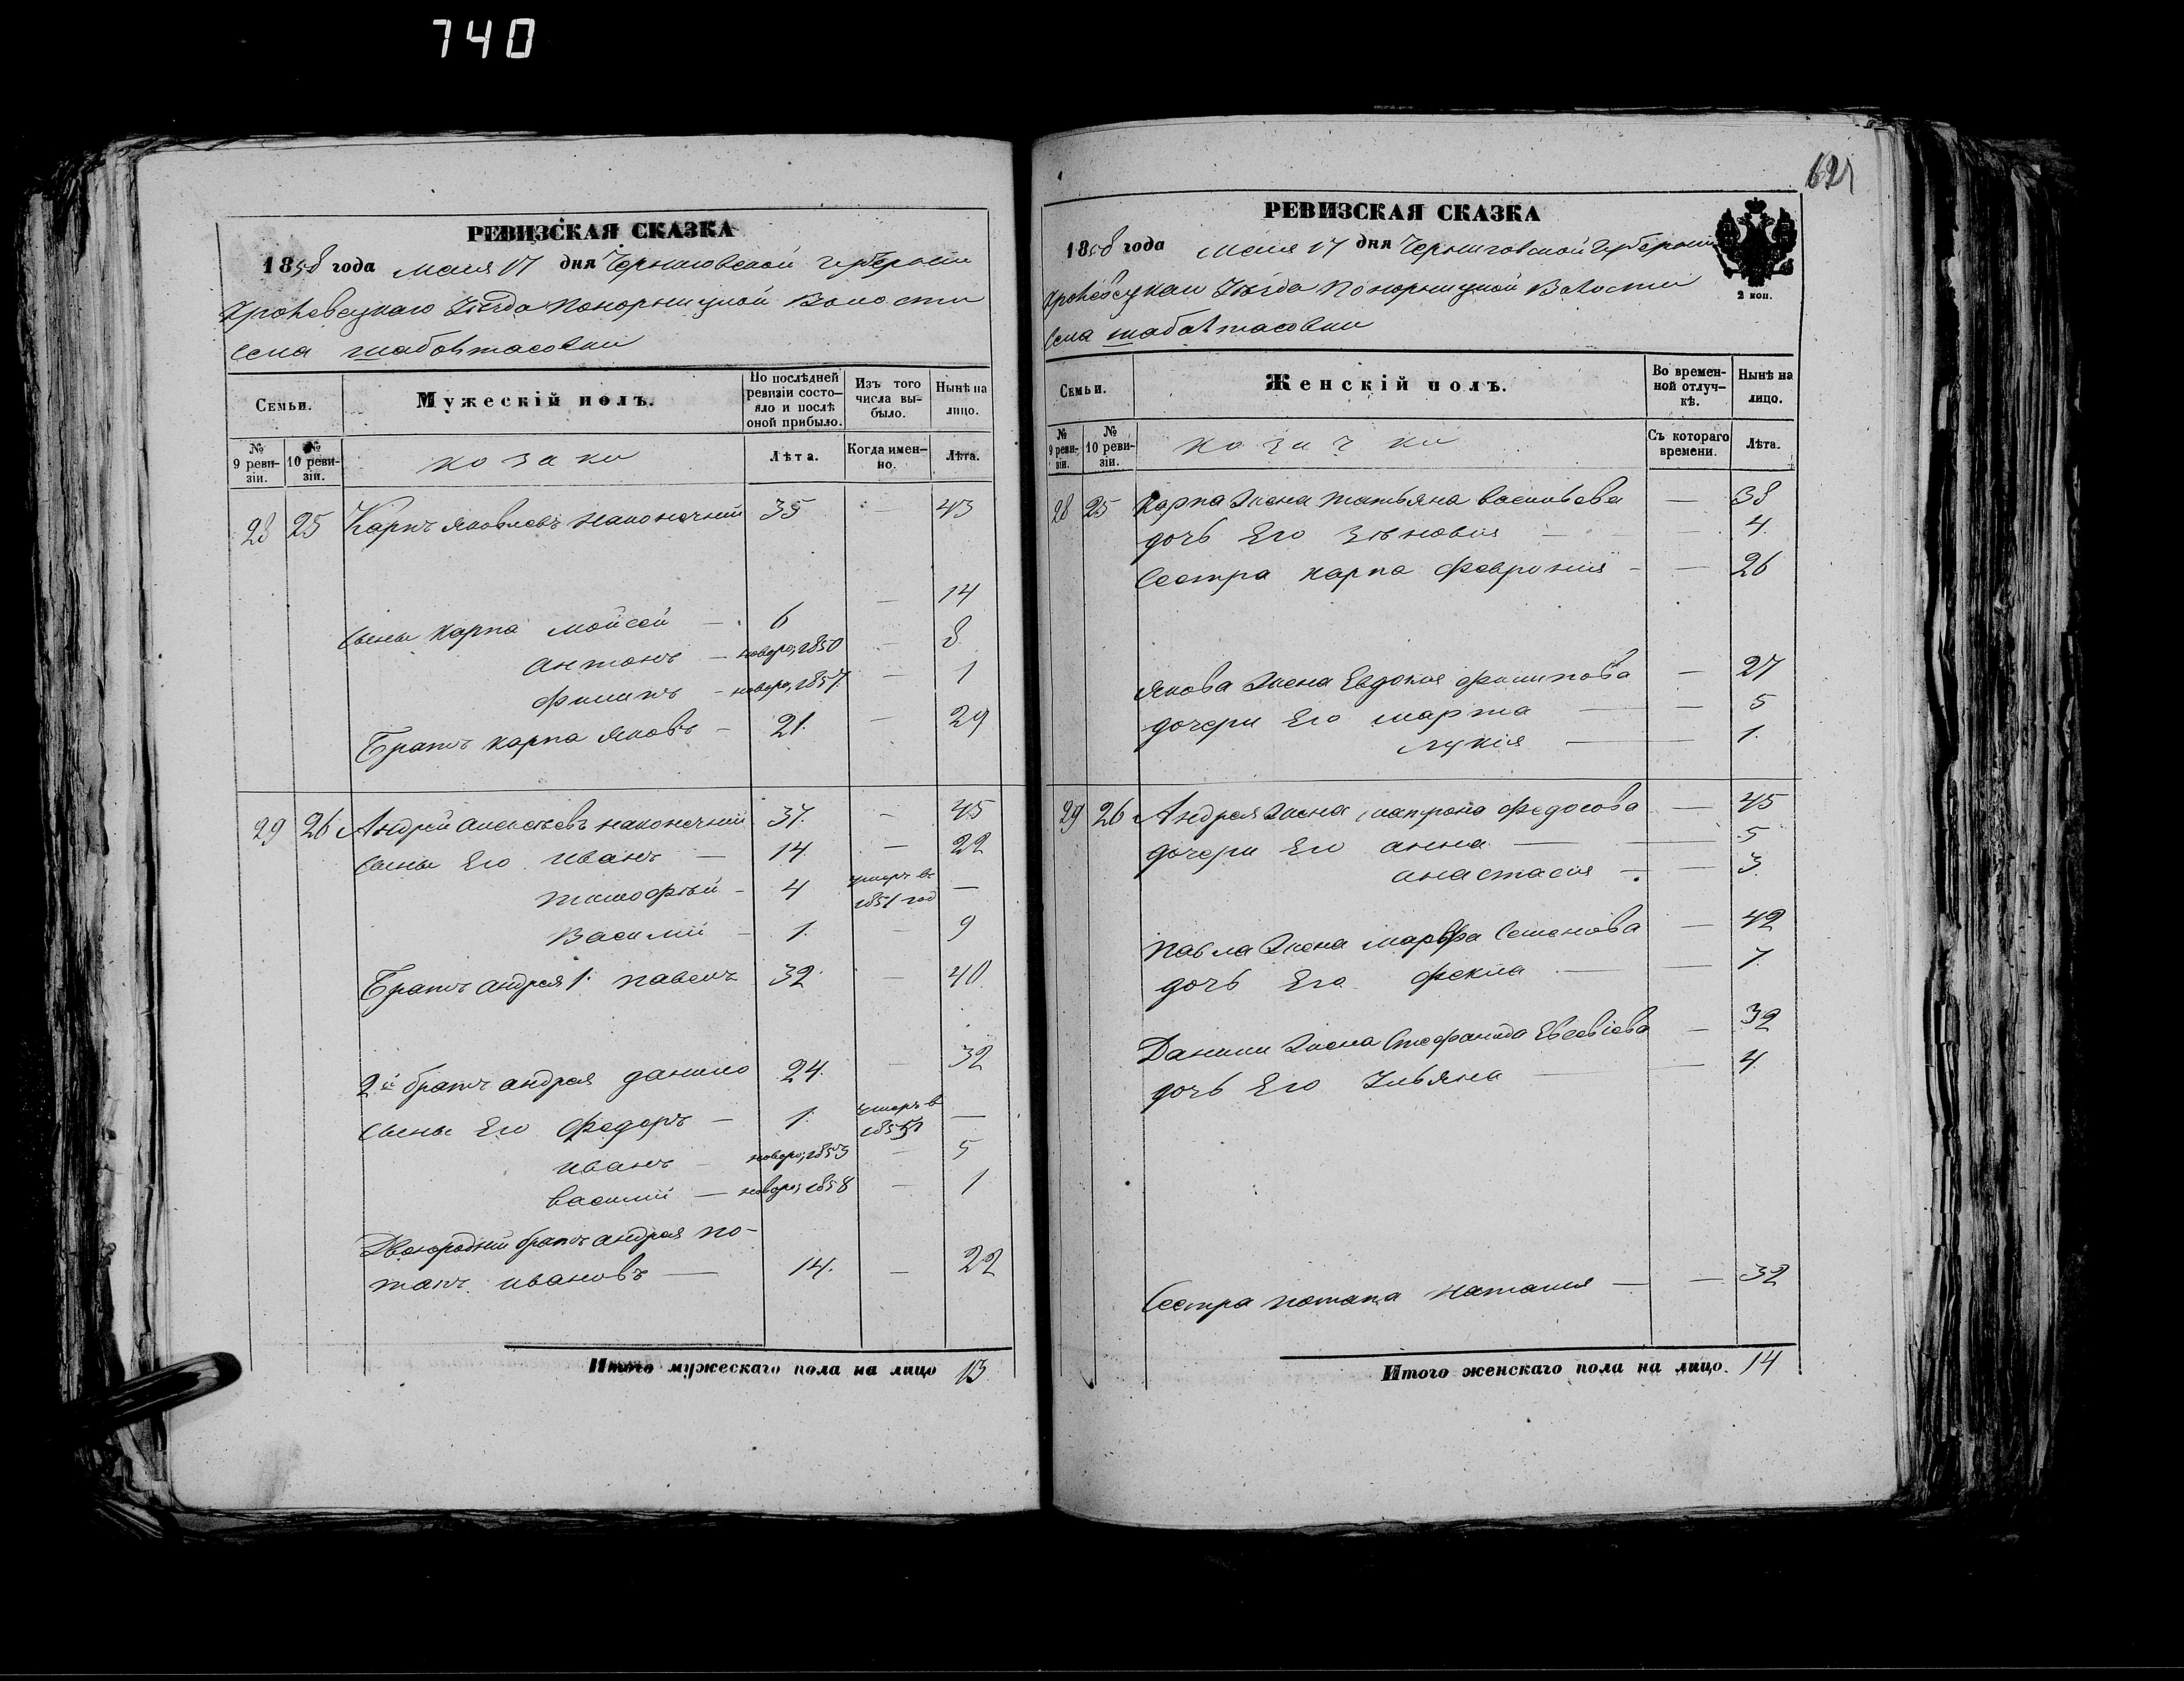 740
РЕВИЗСКАЯ СКАЗКА
1858 года Мая 17 дня Черниговской Губерніи
Кролевецкаго Уѣзда Понорницкой Волости
Села Шабалтасовки
Семьи.
Мужескій полъ.
По послѣдней ревизіи состо-
яло и послѣ оной прибыло.
Изъ того числа вы-
было.
Нынѣ на лицо.
№ 9 реви-
зіи.
№ 10 реви-
зіи.
козаки
Лѣта.
Когда имен-
но.
Лѣта.
28 25 Карпъ Яковлевъ Наконечний 35 — 43
Сыны Карпа Мойсей — 6 — 14
Антонъ — новоро; 1850 — 8
Филипъ — новоро; 1857 — 1
Братъ Карпа Яковъ — 21. — 29
29 26 Андрей Алексѣевъ Наконечний 37. — 45
Сыны Его Иванъ — 14. — 22
Тимофѣй — 4 умеръ въ 1851 год —
Василий — 1. — 9
Братъ Андрея 1. Павелъ 32. — 40
2й братъ Андрея Данило 24. — 32
Сыны Его Федоръ — 1. умеръ в 1851 —
Иванъ — новоро; 1853 — 5
Василий — новоро; 1858 — 1
Двоюродний братъ Андрея По-
тапъ Ивановъ — 14. — 22
Итого мужескаго пола на лицо 13
621
РЕВИЗСКАЯ СКАЗКА
1858 года Мая 17 дня Черниговской Губерніи
2 коп.
Кролевецкаго Уѣзда Понорницкой Волости
Села Шабалтасовки
Семьи.
Женскій полъ.
Во времен-
ной отлуч-
кѣ.
Нынѣ на лицо.
№ 9 реви-
зіи.
№ 10 реви-
зіи.
козачки
Съ котораго времени.
Лѣта.
28 25 Карпа Жена Татьяна Васильева — 38
дочь Его Зѣновия — — 4.
Сестра Карпа Феврония — — 26
Якова Жена Евдокия Филипова — 27
дочери Его Марта — — 5
Лукія — — 1.
29 26 Андрея Жена Матрона Федосова — 45
дочери Его Анна — — 5
Анастасия — — 3.
Павла Жена Марфа Семенова — 42
дочь Его Фекла — — 7.
Данили Жена Стефанида Евсевіева — 32
дочь Его Ульяна — — 4.
Сестра Потапа Наталия — — 32
Итого женскаго пола на лицо. 14